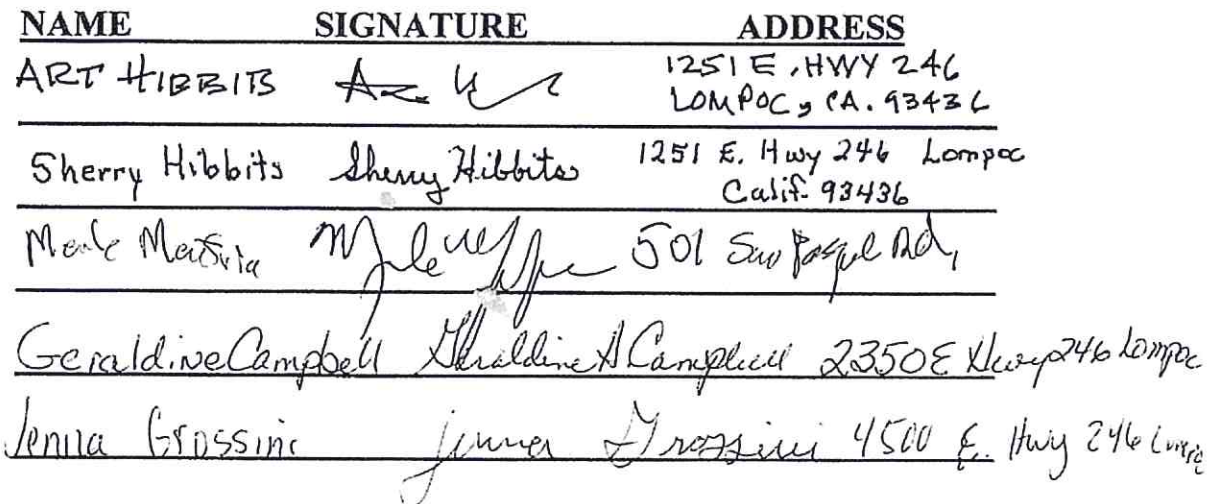 NAME SIGNATURE ADDRESS
ART HIBBITS 1251 E. HWY 246
LOMPOC, CA. 93436
Sherry Hibbits Sherry Hibbits 1251 E. Hwy 246 Lompoc
Calif. 93436
501 San Pasqual Rd,
Geraldine Campbell Geraldine A Campbell 2350 E Hwy 246 Lompoc
Jenna Grossini jenna Grossini 4500 E. Hwy 246 Lompoc